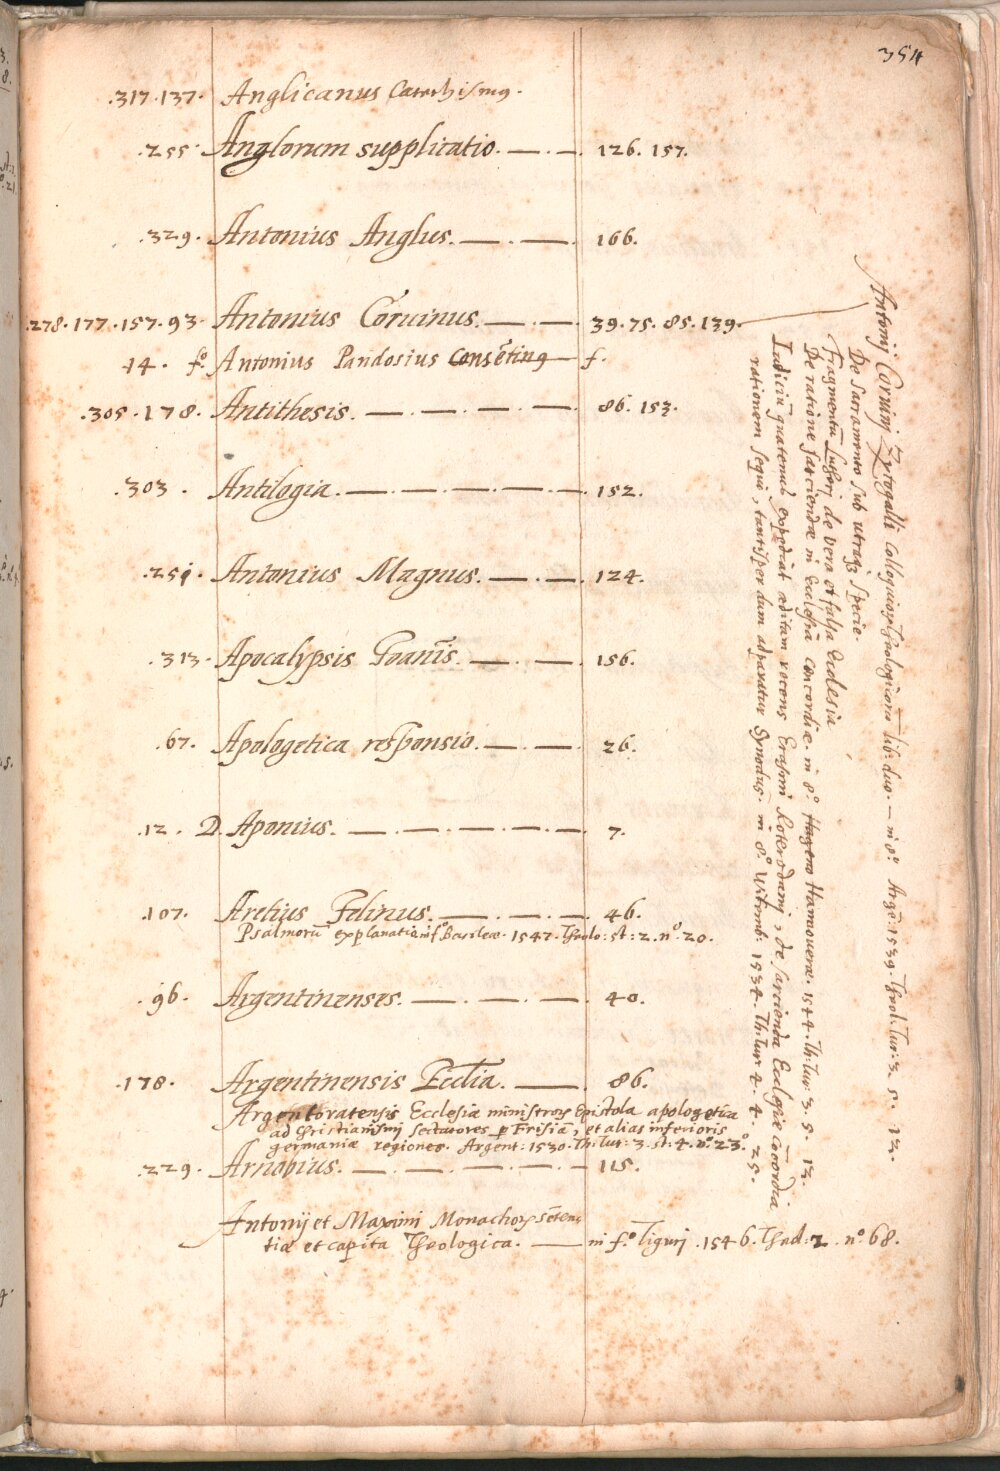 354
.317.137. Anglicanus Catechismꝰ.
.255. Anglorum supplicatio. —.—. 126. 157.
.329. Antonius Anglus. —.—. 166.
.278.177.157.93. Antonius Coruinus. —.—. 39.75.85.139.
14. fº. Antonius Pandosius Consētinꝰ — f.
.305.178. Antithesis. —.—.—.— 86. 153.
.303. Antilogia. —.—.—.—.— 152.
.251. Antonius Magnus. —.— 124.
.313. Apocalypsis Ioanis. —.— 156.
.67. Apologetica responsio. —.— 26.
.12. D. Aponius. —.—.—.—.— 7.
.107. Aretius Felinus. —.—.— 46.
Psalmorū explanatio in fº. Basileæ. 1547. Theolo: st: 2. nº. 20.
.96. Argentinenses. —.—.— 40.
.178. Argentinensis Ecclia. — 86.
Argentoratensis Ecclesiæ ministrorꝫ Epistola apologetica
ad christianismj sectatores p Frisiā, et alias inferioris
germaniæ regiones. Argent: 1530. Th: lut: 3. st: 4. nº. 23.
.229. Arnobius. —.—.—.—.— 115.
Antonij et Maximi Monachorꝫ sēten
tiæ et capita Theologica. — in fº. Tigurj .1546. Theol: 2. nº. 68.
Antonij Coruinj Zytogallj Colloquiorꝫ Theologicorū lib: duo. — in 8º. Argē: 1539. Theol: lut: 3. 5. 12.
De Sacramento sub utraqꝫ specie.
Fragmentū Lutherj de vera et falsa Ecclesia
De ratione sarciendæ in Ecclesia concordiæ. in 8º. Hannoueræ. 1544. Th: lut: 3. 5. 12.
Iudiciū quatenus expediat æditam recens Erasmi Roterodamj, de sarcienda Ecclesiæ cōcordia
rationem sequi, tantisper dum adparatur Synodus. in 8º. Witemb: 1534. Th: lut 4. 4. 25.